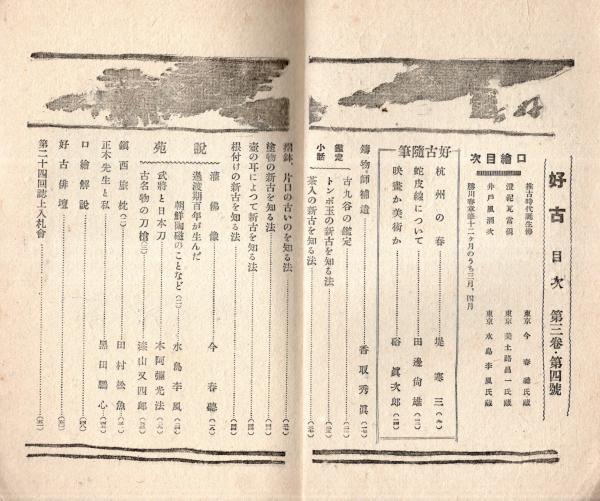 好古 目次 第三卷・第四號
口繪目次
推古時代誕生佛 東京 今春聽氏藏
澄泥瓦當硯 東京 美土路昌一氏藏
井戸風酒次 東京 水島李風氏藏
勝川春章筆十二ヶ月のうち三月、四月
好古隨筆
杭州の春 堤寒三
蛇皮線について 田邊尙雄
映畫か美術か 硲眞次郎
鑄物師補遺 香取秀眞
鑑定小話
古九谷の鑑定
トンボ玉の新古を知る法
茶入の新古を知る法
擂鉢、片口の古いのを知る法
塗物の新古を知る法
壺の耳によつて新古を知る法
根付けの新古を知る法
說苑
灌佛像 今春聽
過渡期百年が生んだ朝鮮陶磁のことなど(二) 水島李風
武將と日本刀 本阿彌光法
古名物の刀槍(三) 山又四郎
鎭西旅枕(二) 田村松魚
正木先生と私 黑田鵬心
口繪解說
好古俳壇
第二十四回誌上入札會